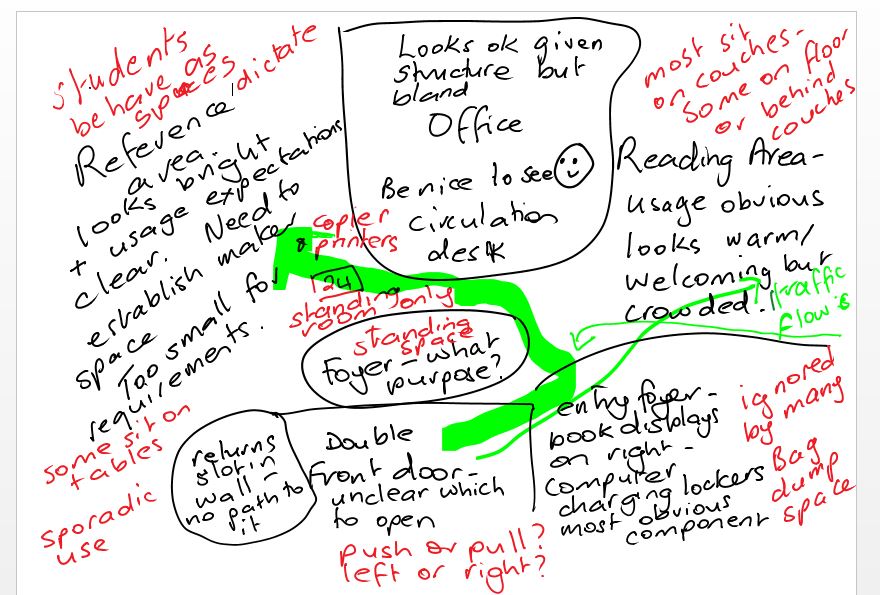 students
behave as
spaces dictate
Reference
area.
looks bright
+ usage expectations
clear. Need to
establish maker
space
Too small for
requirements.
some sit on
tables
sporadic
use
Looks ok given
structure but
bland
Office
Be nice to see
circulation
desk
most sit
on couches-
Some on floor
or behind
couches
Reading Area-
usage obvious
looks warm/
welcoming but
crowded!!
traffic
flow is
copier
printers
24
standing
room only
standing
space
Foyer-what
purpose?
returns
slot in
wall-
no path to
it
Double
front door-
unclear which
to open
push or pull?
left or right?
entry foyer-
book displays
on right-
computer
charging lockers
most obvious
component
ignored
by many
Bag
dump
space